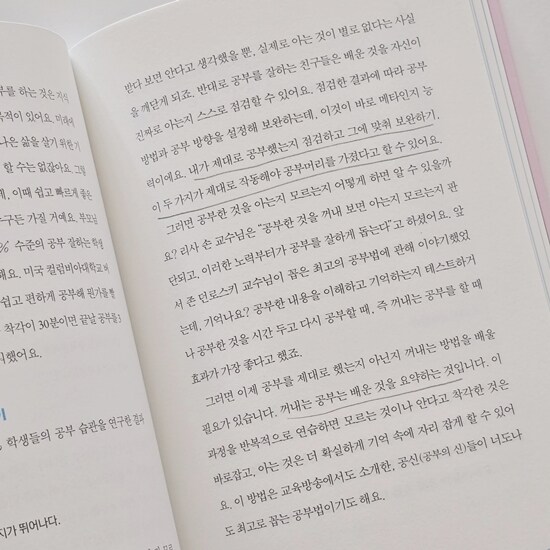 부를 하는 것은 지식
복적이 있어요. 미래에
나은 삶을 살기 위한 기
할 수는 없잖아요. 그렇
데, 이때 쉽고 빠르게 좋은
구든 가질 거예요. 부모님
% 수준의 공부 잘하는 학생
해요. 미국 컬럼비아대학교
쉽고 편하게 공부해
착각이 30분이면 끝날 공부를 3
시했어요.
학생들의 공부 습관을 연구한 결과
지가 뛰어나다.
받다 보면 안다고 생각했을 뿐, 실제로 아는 것이 별로 없다는 사실
을 깨닫게 되죠. 반대로 공부를 잘하는 친구들은 배운 것을 자신이
진짜로 아는지 스스로 점검할 수 있어요. 점검한 결과에 따라 공부
방법과 공부 방향을 설정해 보완하는데, 이것이 바로 메타인지 능
력이에요. 내가 제대로 공부했는지 점검하고 그에 맞춰 보완하기,
이 두 가지가 제대로 작동해야 공부머리를 가졌다고 할 수 있어요.
그러면 공부한 것을 아는지 모르는지 어떻게 하면 알 수 있을까
요? 리사 손 교수님은 “공부한 것을 꺼내 보면 아는지 모르는지 판
단되고, 이러한 노력부터가 공부를 잘하게 돕는다”고 하셨어요. 앞
서 존 던로스키 교수님이 꼽은 최고의 공부법에 관해 이야기했었
는데, 기억나요? 공부한 내용을 이해하고 기억하는지 테스트하거
나 공부한 것을 시간 두고 다시 공부할 때, 즉 꺼내는 공부를 할 때
효과가 가장 좋다고 했죠.
그러면 이제 공부를 제대로 했는지 아닌지 꺼내는 방법을 배울
필요가 있습니다. 꺼내는 공부는 배운 것을 요약하는 것입니다. 이
과정을 반복적으로 연습하면 모르는 것이나 안다고 착각한 것은
바로잡고, 아는 것은 더 확실하게 기억 속에 자리 잡게 할 수 있어
요. 이 방법은 교육방송에서도 소개한, 공신(공부의 신)들이 너도나
도 최고로 꼽는 공부법이기도 해요.